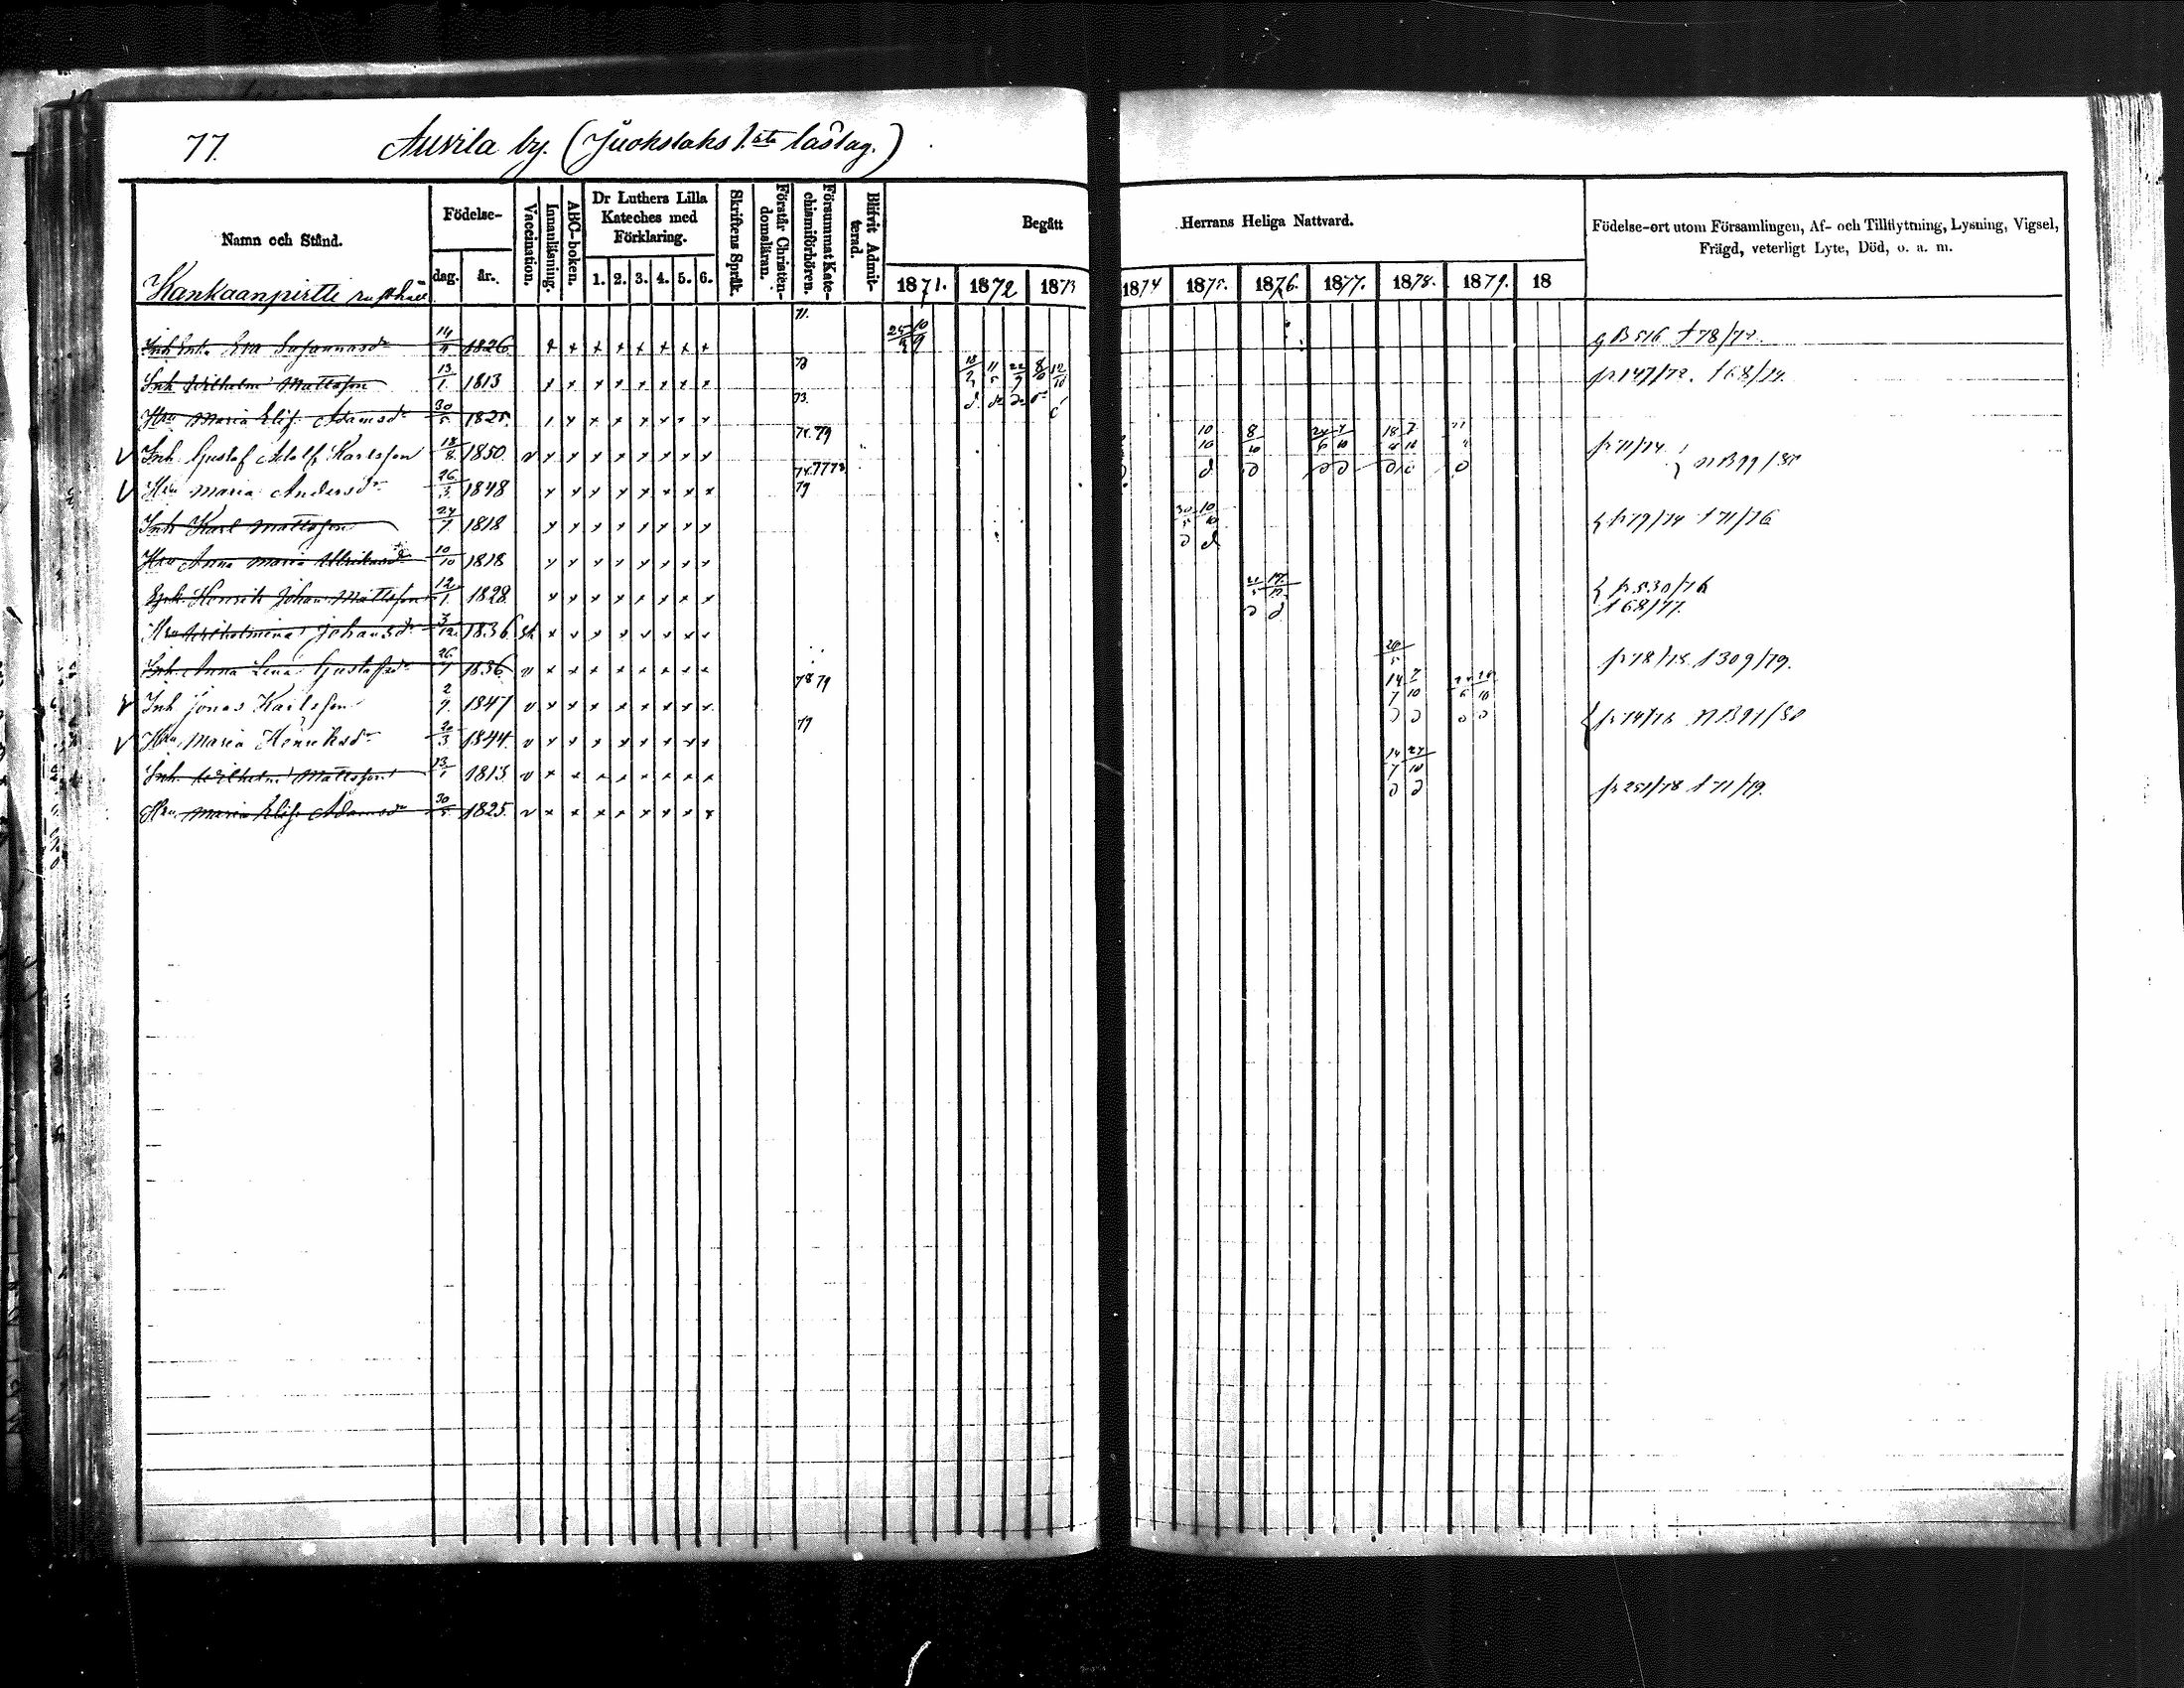 77. Auvila by. (Juokslaks 1.sta låstag.)
Namn och Stånd.
Födelse-
dag. år.
Vaccination.
Innanläsning.
ABC-boken.
Dr Luthers Lilla Kateches med Förklaring.
1. 2. 3. 4. 5. 6.
Skriftens Språk.
Förstår Christendomsläran.
Försummat Katechismiförhören.
Blifvit Admitterad.
Begått Herrans Heliga Nattvard.
1871. 1872 1873 1874 1875. 1876. 1877. 1878. 1879. 18
Födelse-ort utom Församlingen, Af- och Tillflyttning, Lysning, Vigsel,
Frägd, veterligt Lyte, Död, o. a. m.
Kankaanpirtti rusthåll
Inh Enk. Eva Susannasdr 14/11 1826 x x x x x x x x 71. 25/3 10/9 g B 516 t 78/72.
Inh Wilhelm Mattsson 13/1 1813 x x x x x x x x 73 fr 147/72. t 68/74.
Hru Maria Elis. Adamsdr 30/5 1825. x x x x x x x x 73.
v Inh Gustaf Adolf Karlsson 18/8 1850 v x x x x x x x x 78. 79 10/10 8/10 fr 71/74 n B 99/80
v Hru Maria Andersdr 26/3 1848 x x x x x x x x 79
Inh Karl Mattsson 24/7 1818 x x x x x x x x 30/5 10/10 fr 79/74 t 71/76
Hru Anna Maria Ulriksdr 10/10 1818 x x x x x x x x
Inh. Henrik Johan Mattsson 12/1 1828 x x x x x x x x fr 530/76
t 68/77.
Hru Wilhelmina Johansdr 3/12 1836 sk x x x x x x x x
Inh. Anna Lena Gustafsdr 26/1 1836 v x x x x x x x x fr 78/78 t 309/79.
v Inh Jonas Karlsson 2/9 1847 v x x x x x x x x 78 79 14/7 7/10 fr 74/78 n B 97/80
v Hru Maria Henriksdr 20/3 1844. v x x x x x x x x 79
Inh. Wilhelm Mattsson 13/1 1813 v x x x x x x x x 14/7 27/10 fr 251/78 t 71/79.
Hru Maria Elis. Adamsdr 30/5 1825. v x x x x x x x x